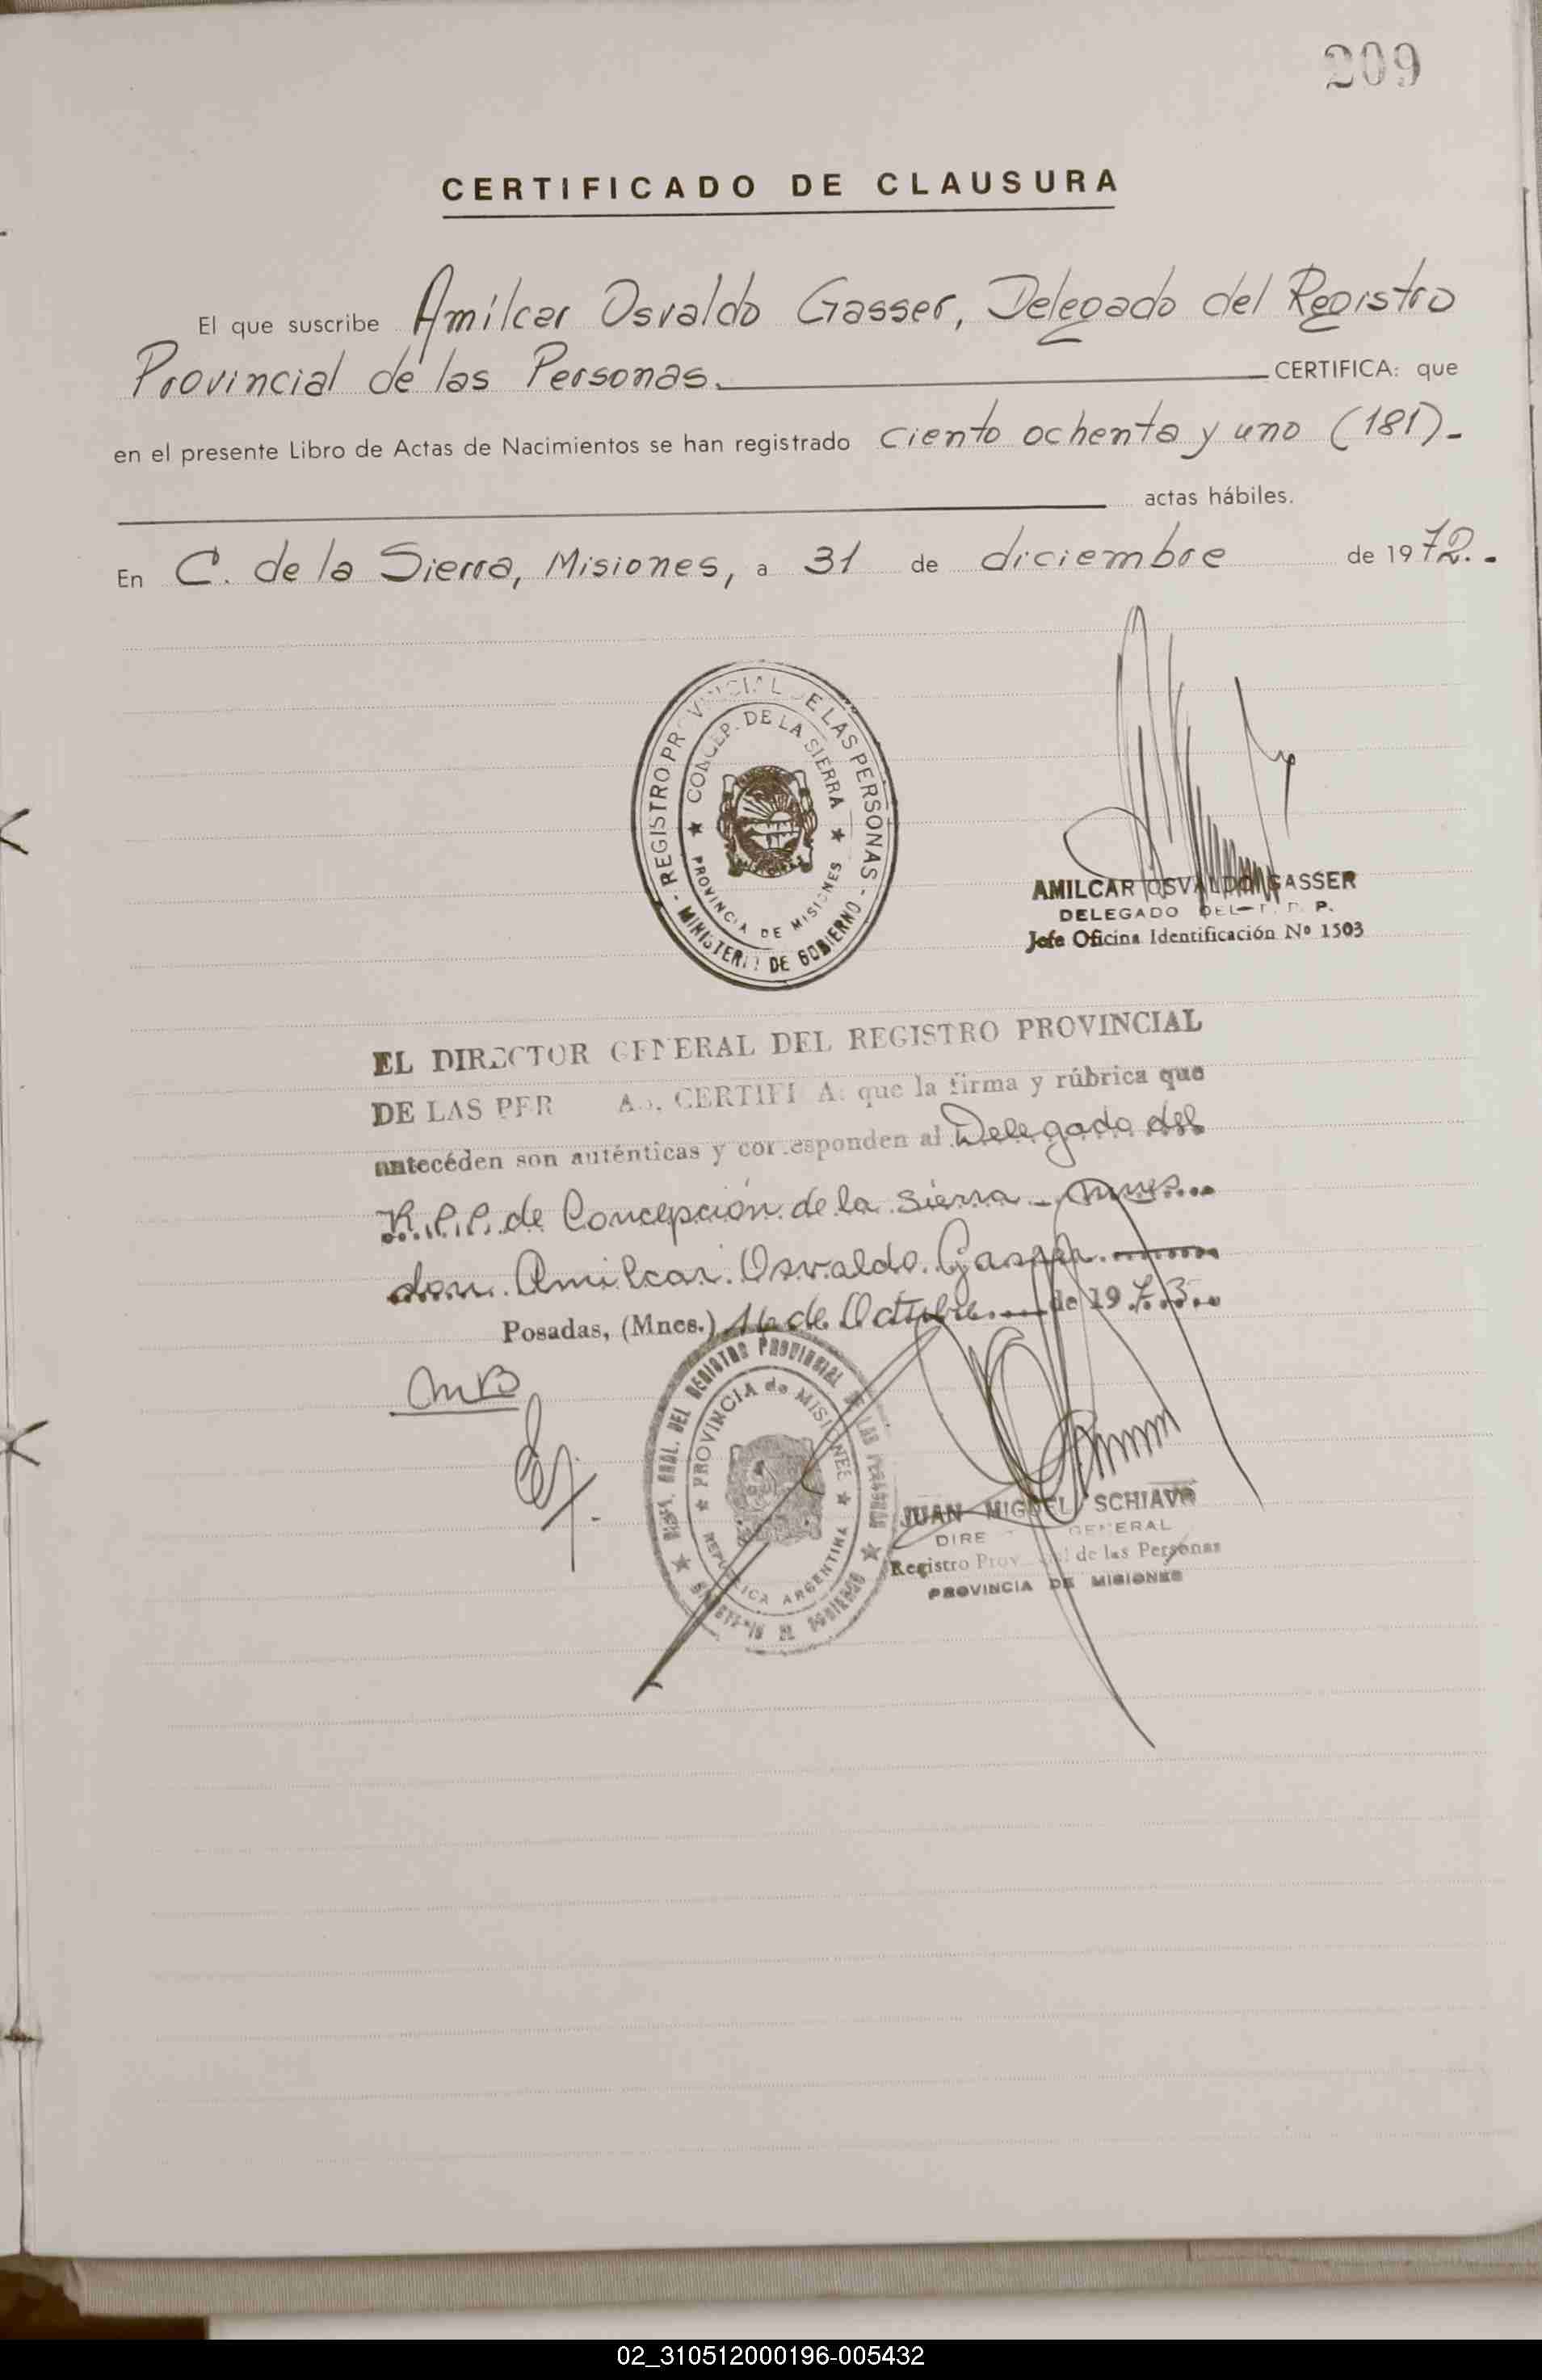 209
CERTIFICADO DE CLAUSURA
El que suscribe Amílcar Osvaldo Gasser, Delegado del Registro
Provincial de las Personas. CERTIFICA: que
en el presente Libro de Actas de Nacimientos se han registrado ciento ochenta y uno (181).-
actas hábiles.
En C. de la Sierra, Misiones, a 31 de diciembre de 1972.-
REGISTRO PROVINCIAL DE LAS PERSONAS
- MINISTERIO DE GOBIERNO -
CONCEP. DE LA SIERRA
★ PROVINCIA DE MISIONES ★
AMILCAR OSVALDO GASSER
DELEGADO DEL P.
Jefe Oficina Identificación Nº 1503
EL DIRECTOR GENERAL DEL REGISTRO PROVINCIAL
DE LAS PER AS, CERTIFI A: que la firma y rúbrica que
antecéden son auténticas y corresponden al Delegado del
R.P.P. de Concepción de la Sierra - Mnes...
don Amilcar Osvaldo Gasser
Posadas, (Mnes.) 16 de Octubre de 1973
GRAL. DEL REGISTRO PROVINCIAL DE LAS PERSONAS
MINISTERIO DE GOBIERNO
★ PROVINCIA de MISIONES ★
REPUBLICA ARGENTINA
JUAN MIGUEL SCHIAVO
DIRE GENERAL
Registro Provincial de las Personas
PROVINCIA DE MISIONES
02_310512000196-005432